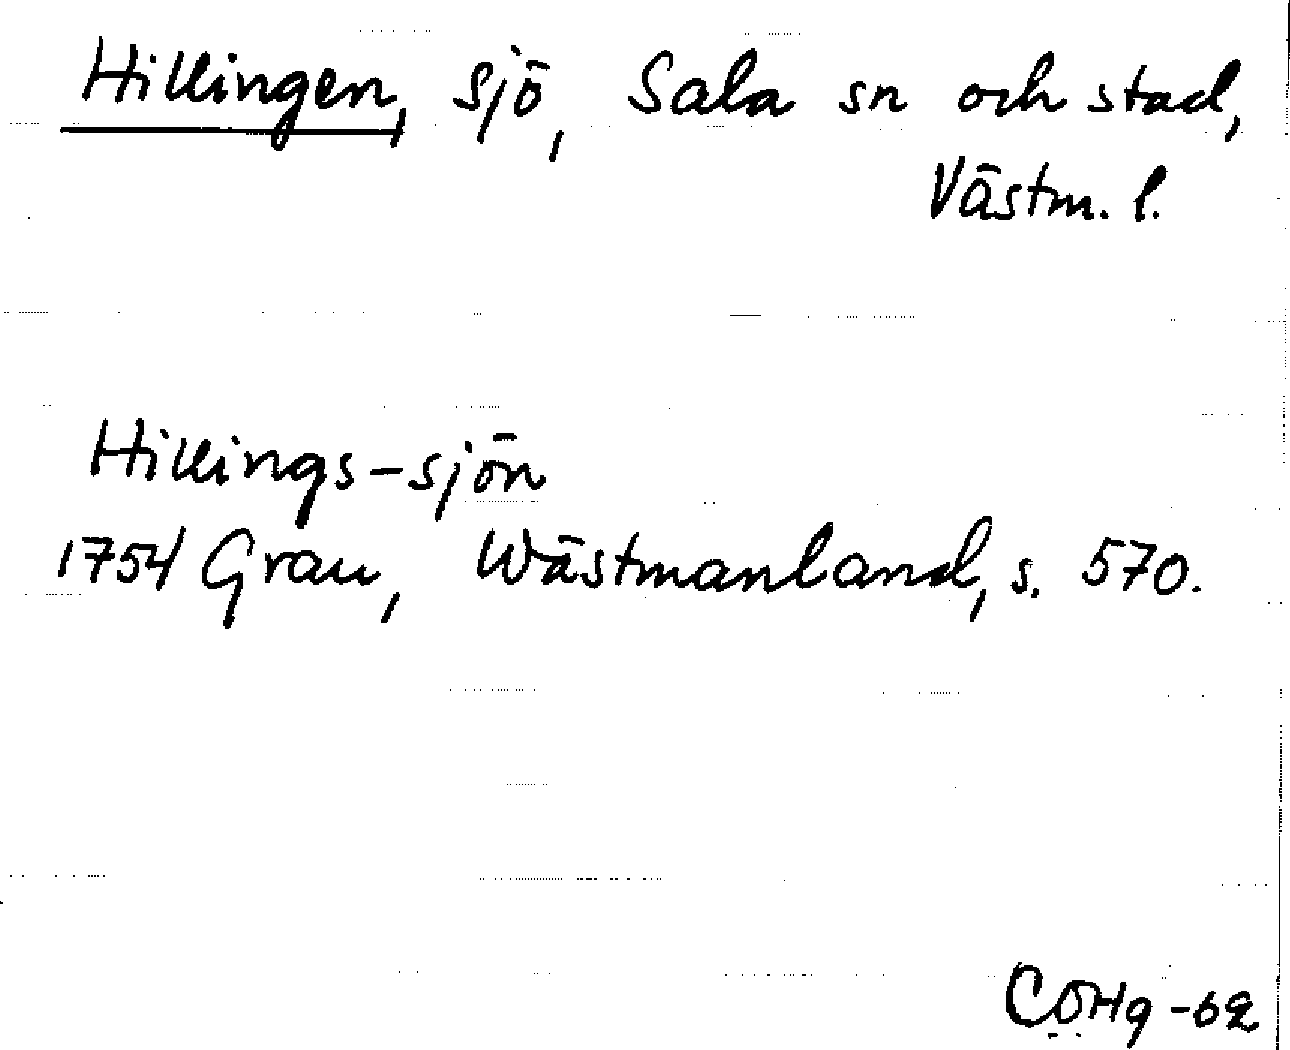 Hillingen, sjö, Sala sn och stad,
Västm. l.
Hillings-sjön
1754 Grau, Wästmanland, s. 570.
CÖHg -62